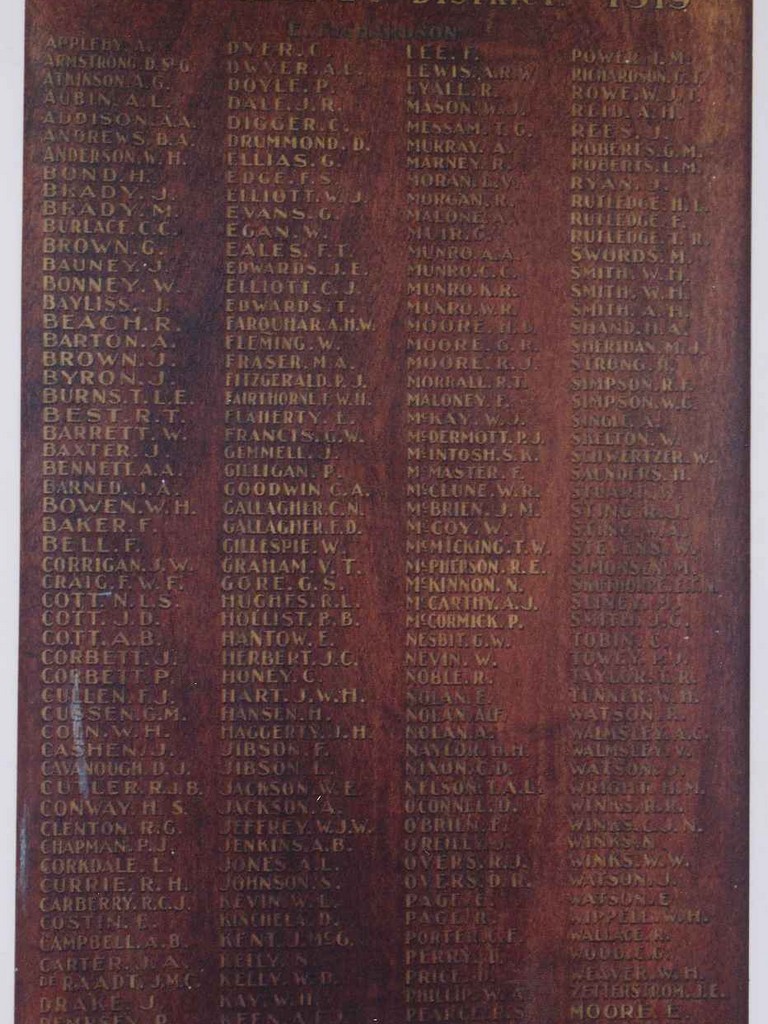 DISTRICT. 1919
E. RICHARDSON
APPLEBY. A.
ARMSTRONG. D. McG
ATKINSON. A. G.
AUBIN. A. L.
ADDISON. A.A.
ANDREWS. B.A.
ANDERSON. W. H.
BOND. H.
BRADY. J.
BRADY. M.
BURLACE. C.C.
BROWN. G.
BAUNEY. J.
BONNEY. W.
BAYLISS. J.
BEACH. R.
BARTON. A.
BROWN. J.
BYRON. J.
BURNS. T. L. E.
BEST. R. T.
BARRETT. W.
BAXTER. J.
BENNETT. A.A.
BARNED. J. A.
BOWEN. W. H.
BAKER. F.
BELL. F.
CORRIGAN. J. W.
CRAIG. F. W. F.
COTT. N. L. S.
COTT. J. D.
COTT. A. B.
CORBETT. J.
CORBETT. P.
CULLEN. F. J.
CUSSEN. G. M.
COEN. W. H.
CASHEN. J.
CAVANOUGH. D. J.
CUTLER. R.J.B.
CONWAY. H. S.
CLENTON. R. G.
CHAPMAN. P. J.
CORKDALE. L.
CURRIE. R. H.
CARBERRY. R.C.J.
COSTIN. E.
CAMPBELL. A. B.
CARTER. J. A.
DE RAADT. J.M.C.
DRAKE. J.
DEMPSEY. P.
DYER. C.
DWYER. A.L.
DOYLE. P.
DALE. J. R.
DIGGER. C.
DRUMMOND. D.
ELLIAS. G.
EDGE. F. S.
ELLIOTT. W. J.
EVANS. G.
EGAN. W.
EALES. F. T.
EDWARDS. J. E.
ELLIOTT. C. J.
EDWARDS. T.
FARQUHAR. A.H.W.
FLEMING. W.
FRASER. M.A.
FITZGERALD. P. J.
FAIRTHORNE. T. W. H.
FLAHERTY. E.
FRANCIS. G.W.
GEMMELL. J.
GILLIGAN. P.
GOODWIN. G. A.
GALLAGHER. C. N.
GALLAGHER. F. D.
GILLESPIE. W.
GRAHAM. V. T.
GORE. G. S.
HUGHES. R. L.
HOLLIST. P. B.
HANTOW. E.
HERBERT. J. C.
HONEY. C.
HART. J. W. H.
HANSEN. H.
HAGGERTY. J. H
JIBSON. F.
JIBSON. L.
JACKSON. W. E.
JACKSON. A.
JEFFREY. W.J.W.
JENKINS. A. B.
JONES. A. L.
JOHNSON. S.
KEVIN. W. L.
KINCHELA. D.
KENT. J. McG.
KEILY. N
KELLY. W. B.
KAY. W. H.
KEEN. A. E. J.
LEE. F.
LEWIS. A.R.W.
LYALL. R.
MASON. W. J.
MESSAM. T. G.
MURRAY. A.
MARNEY. R.
MORAN. L. V.
MORGAN. R.
MALONE. A.
MUIR. G.
MUNRO. A.A.
MUNRO. C. C.
MUNRO. K. R.
MUNRO. W. R.
MOORE. H. U.
MOORE. G. R.
MOORE. R. J.
MORRALL. R. T.
MALONEY. E.
McKAY. W. J.
McDERMOTT. P. J.
McINTOSH. S. K.
McMASTER. F.
McCLUNE. W. R.
McBRIEN. J. M.
McCOY. W.
McMICKING. T. W.
McPHERSON. R. E.
McKINNON. N.
McCARTHY. A. J.
McCORMICK. P.
NESBIT. G.W.
NEVIN. W.
NOBLE. R.
NOLAN. E.
NOLAN. ALF.
NOLAN. A.
NAYLOR. H. H.
NIXON. C. D.
NELSON. T. A. L.
O'CONNELL. D.
O'BRIEN. F.
O'REILLY. J.
OVERS. R. J.
OVERS. D. R.
PAGE. E.
PAGE. R.
PORTER. G. E.
PERRY. H.
PRICE. H.
PHILLIP. W. A.
PEARCE. E. S.
POWER. T. M.
RICHARDSON. G. T.
ROWE. W. J. T.
REID. A. H.
REES. J.
ROBERTS. G. M.
ROBERTS. L. M.
RYAN. J.
RUTLEDGE. H. L.
RUTLEDGE. F.
RUTLEDGE. T. R.
SWORDS. M.
SMITH. W. H.
SMITH. W. H.
SMITH. A. H.
SHAND. H. A.
SHERIDAN. M. J.
STRONG. H.
SIMPSON. R. F.
SIMPSON. W. G.
SINGLE. A.
SKELTON. W.
SCHWERTZER. W.
SAUNDERS. H.
STUART. W.
STING. R. J.
STEVENS. W.
SIMONSEN. M.
SLINEY. M.
SMITH. J. G.
TOBIN. C.
TOWEY. P. J.
TAYLOR. E. R.
TUNKER. W. H.
WATSON. R.
WALMSLEY. A. C.
WALMSLEY. V.
WATSON. J.
WRIGHT. H. M.
WINKS. R. R.
WINKS. C. J. N.
WINKS. K.
WINKS. W. W.
WATSON. J.
WATSON. E.
WIPPELL. W. H.
WALLACE. R.
WOOD. C. B.
WEAVER. W. H.
ZETTERSTROM. J.E.
MOORE. E.